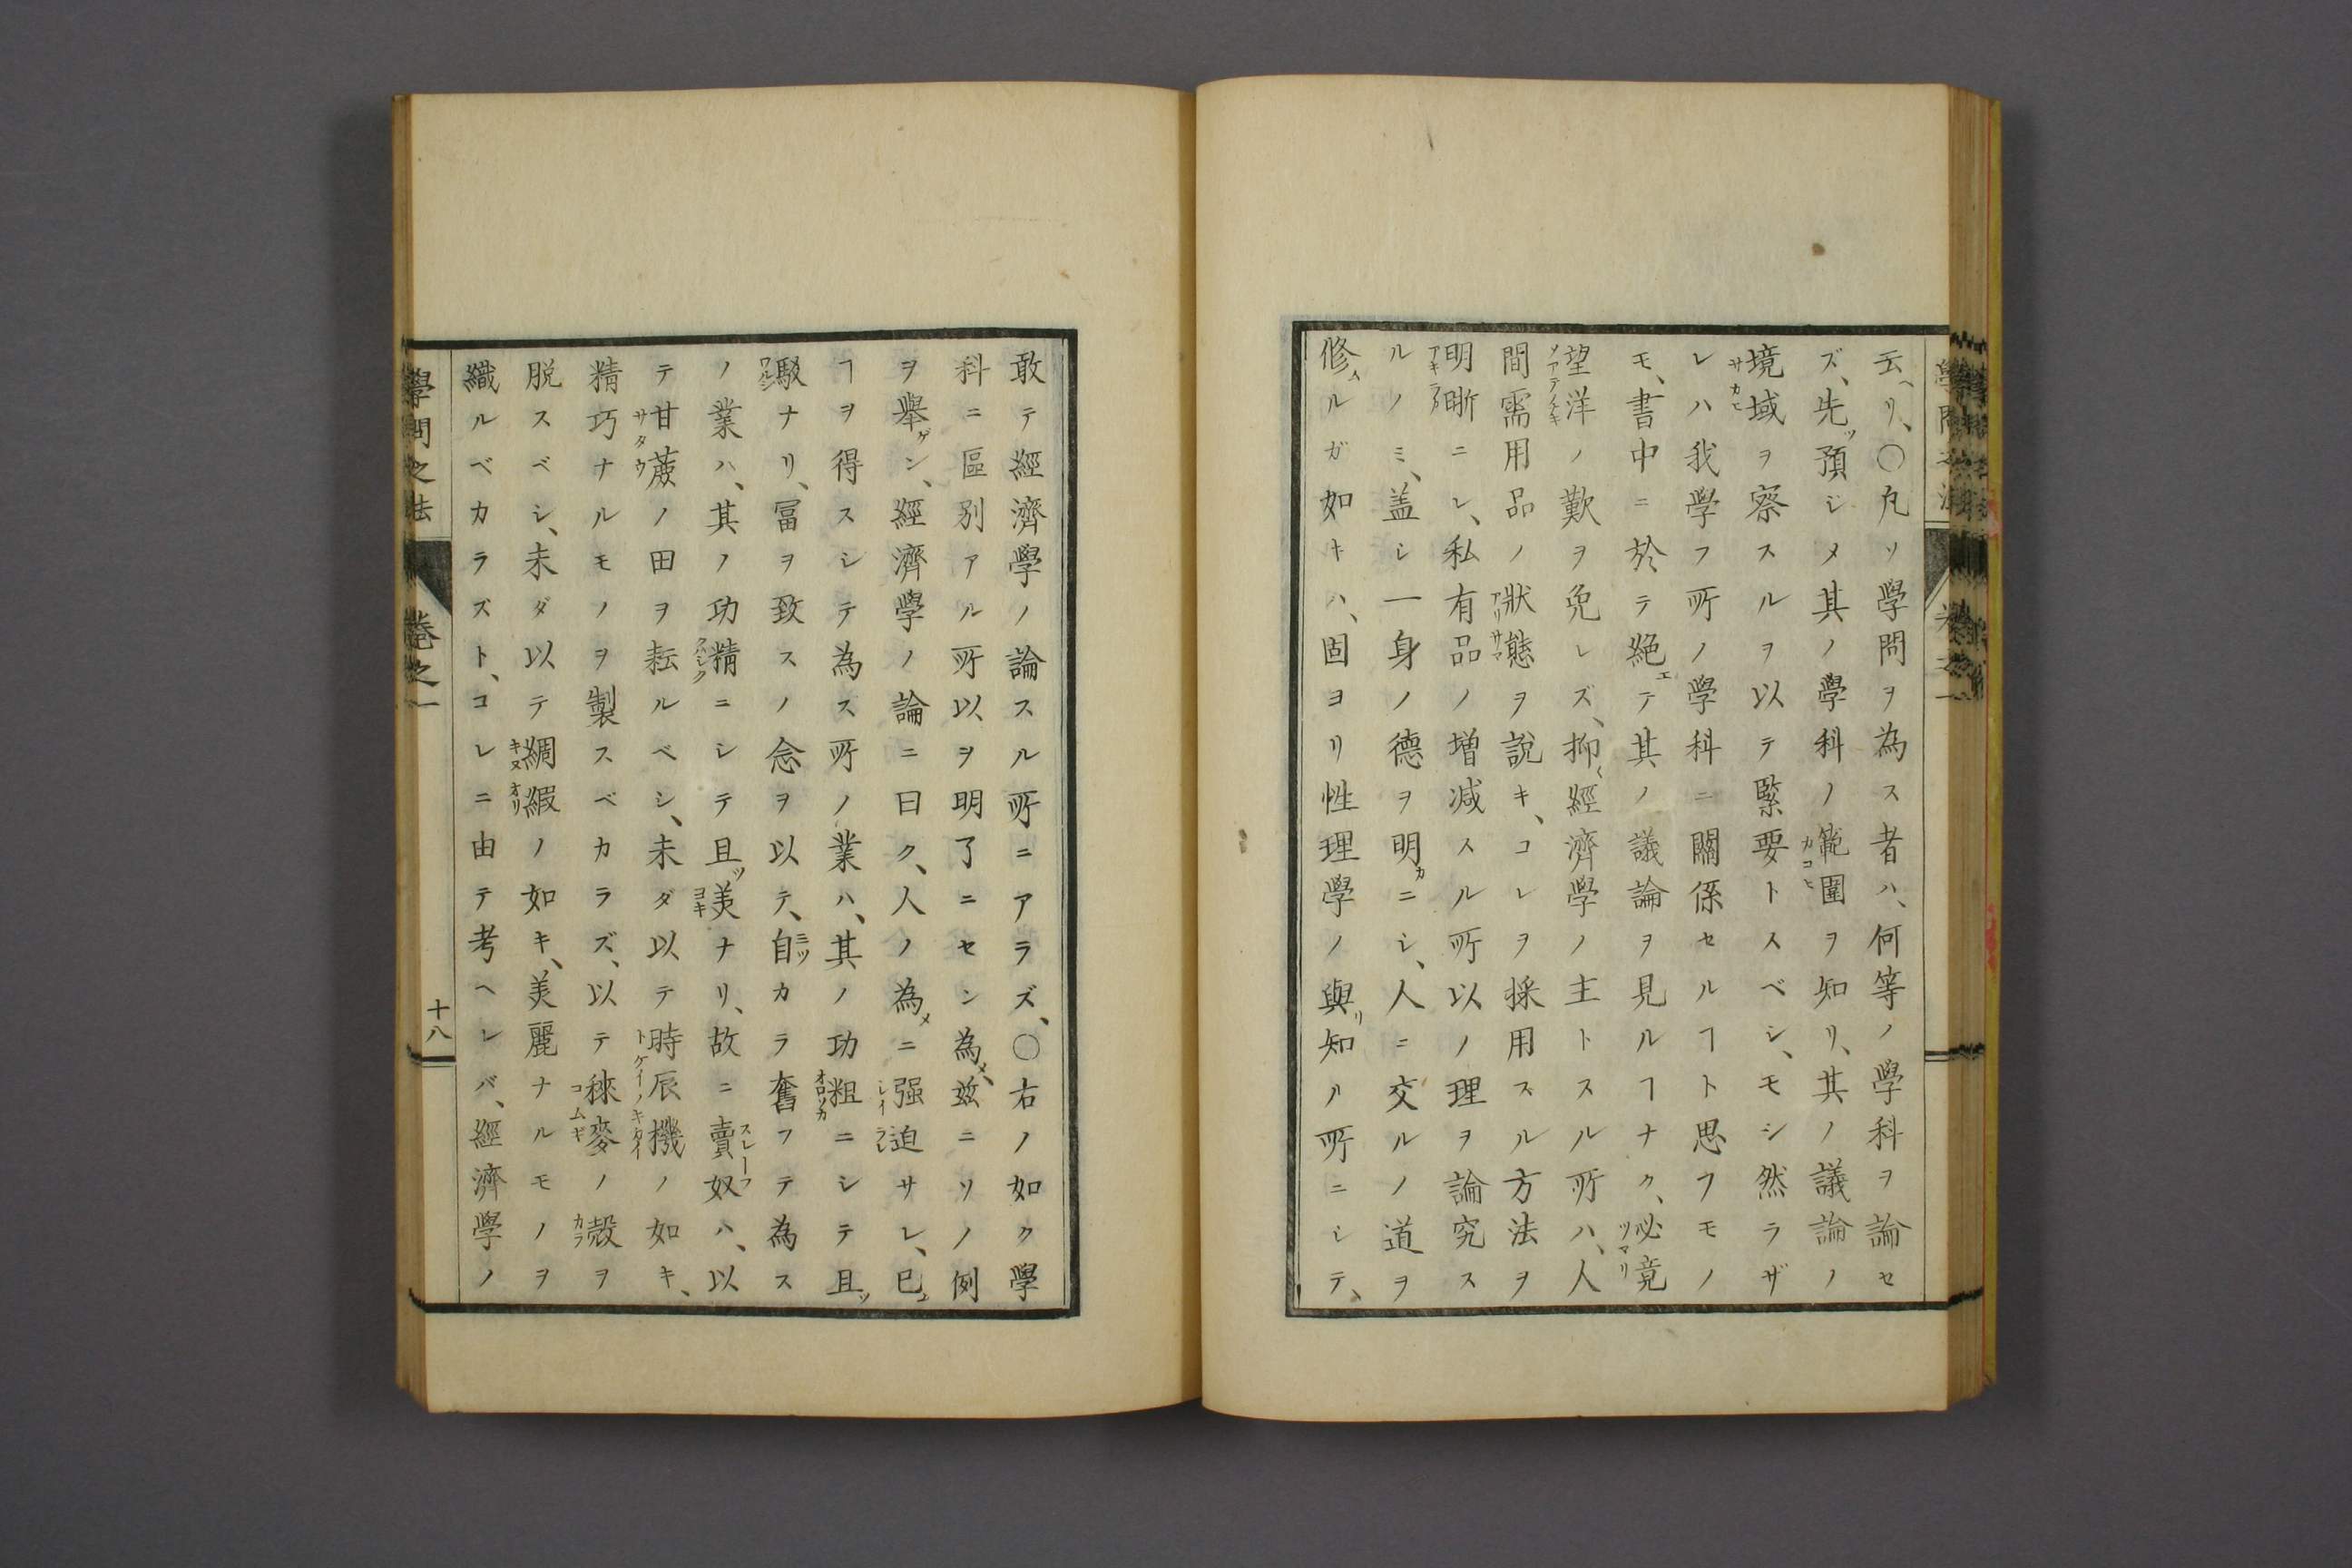 云ヘリ、〇凡ソ學問ヲ為ス者ハ、何等ノ學科ヲ論セ
ズ、先ツ預シメ其ノ學科ノ範圍ヲ知リ、其ノ議論ノ
境域ヲ察スルヲ以テ緊要トスベシ、モシ然ラザ
レハ我學フ所ノ學科ニ關係セルヿト思フモノ
モ、書中ニ於テ絕エテ其ノ議論ヲ見ルヿナク、必竟
望洋ノ歎ヲ免レズ、抑〻經濟學ノ主トスル所ハ、人
間需用品ノ狀態ヲ說キ、コレヲ採用スル方法ヲ
明晰ニシ、私有品ノ增減スル所以ノ理ヲ論究ス
ルノミ、盖シ一身ノ德ヲ明カニシ、人ニ交ルノ道ヲ
修ムルガ如キハ、固ヨリ性理學ノ與リ知ル所ニシテ、
敢テ經濟學ノ論スル所ニアラズ、〇右ノ如ク學
科ニ區别アル所以ヲ明了ニセン為メ、玆ニ一ツノ例
ヲ舉ゲン、經濟學ノ論ニ曰ク、人ノ為メニ强迫サレ、已ム
ヿヲ得スシテ為ス所ノ業ハ、其ノ功粗ニシテ且ツ
駁ナリ、冨ヲ致スノ念ヲ以テ、自ミツカラ奮フテ為ス
ノ業ハ、其ノ功精ニシテ且ツ美ナリ、故ニ賣奴ハ、以
テ甘蔗ノ田ヲ耘ルベシ、未ダ以テ時辰機ノ如キ、
精巧ナルモノヲ製スベカラズ、以テ䅘麥ノ殻ヲ
脱スベシ、未ダ以テ綢緞ノ如キ、美麗ナルモノヲ
織ルベカラズト、コレニ由テ考ヘレバ、經濟學ノ
學問之法 卷之一 十八